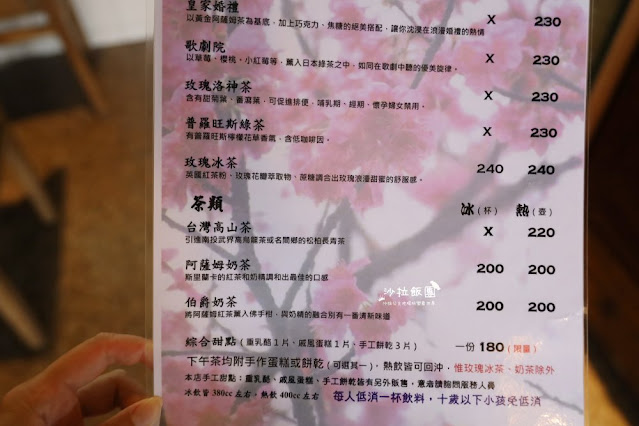 皇家婚禮 X 230
以黃金阿薩姆茶為基底，加上巧克力、焦糖的絕美搭配，讓你沈浸在浪漫婚禮的熱情
歌劇院 X 230
以草莓、櫻桃、小紅莓等，薰入日本綠茶之中，如同在歌劇中聽的優美旋律。
玫瑰洛神茶 X 230
含有甜菊葉、番瀉葉，可促進排便，哺乳期、經期、懷孕婦女禁用。
普羅旺斯綠茶 X 230
有普羅旺斯檸檬花草香氣，含低咖啡因。
玫瑰冰茶 240 240
英國紅茶粉、玫瑰花瓣萃取物、蔗糖調合出玫瑰浪漫甜蜜的舒服感。
茶類 冰(杯) 熱(壺)
台灣高山茶 X 220
引進南投武界高烏龍茶或名間鄉的松柏長青茶
阿薩姆奶茶 200 200
斯里蘭卡的紅茶和奶精調和出最佳的口感
沙拉飯團
伯爵奶茶 200 200
將阿薩姆紅茶薰入佛手柑，與奶精的融合別有一番清新味道
綜合甜點(重乳酪1片、戚風蛋糕1片、手工餅乾3片) 一份 180(限量)
下午茶均附手作蛋糕或餅乾(可選其一)，熱飲皆可回沖，惟玫瑰冰茶、奶茶除外
本店手工甜點：重乳酪、戚風蛋糕、手工餅乾皆有另外販售，意洽請詢問服務人員
冰飲皆 380cc 左右，熱飲 400cc 左右 每人低消一杯飲料，十歲以下小孩免低消